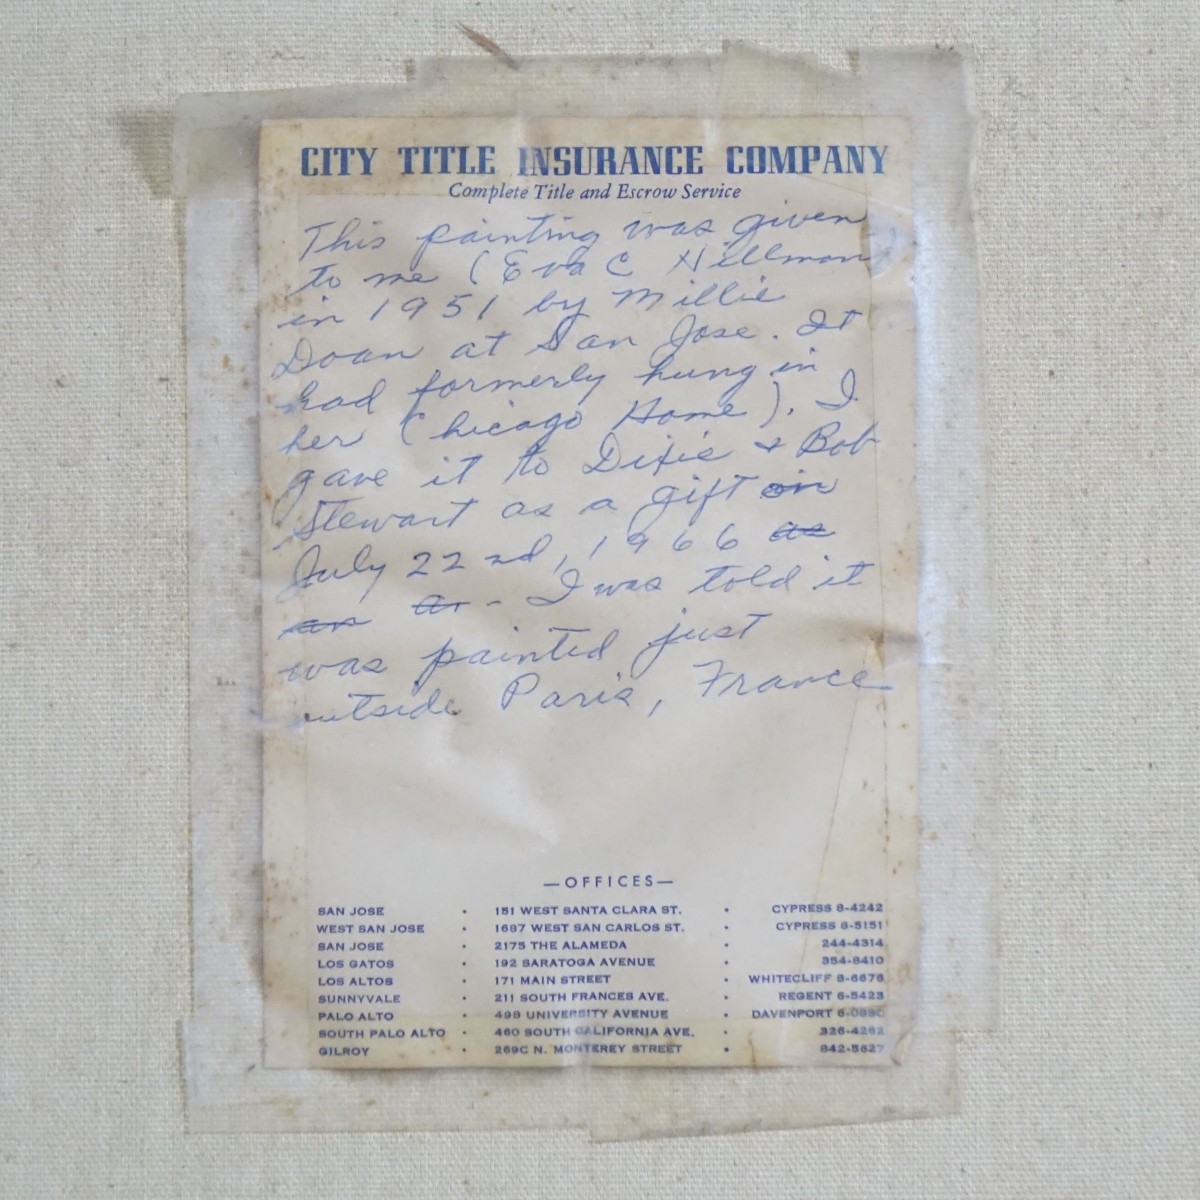 CITY TITLE INSURANCE COMPANY
Complete Title and Escrow Service
This painting was given
to me (Eva C Hillman
in 1951 by Millie
Doan at San Jose. It
had formerly hung in
her (Chicago Home). I
gave it to Dixie & Bob
Stewart as a gift on
July 22nd, 1966 as
an ar - I was told it
was painted just
outside Paris, France
—OFFICES—
SAN JOSE • 151 WEST SANTA CLARA ST. • CYPRESS 8-4242
WEST SAN JOSE • 1687 WEST SAN CARLOS ST. • CYPRESS 8-5151
SAN JOSE • 2175 THE ALAMEDA • 244-4314
LOS GATOS • 192 SARATOGA AVENUE • 354-8410
LOS ALTOS • 171 MAIN STREET • WHITECLIFF 8-6676
SUNNYVALE • 211 SOUTH FRANCES AVE. • REGENT 6-5423
PALO ALTO • 498 UNIVERSITY AVENUE • DAVENPORT
SOUTH PALO ALTO • 460 SOUTH CALIFORNIA AVE. • 326-4262
GILROY • 269C N. MONTEREY STREET • 842-5627